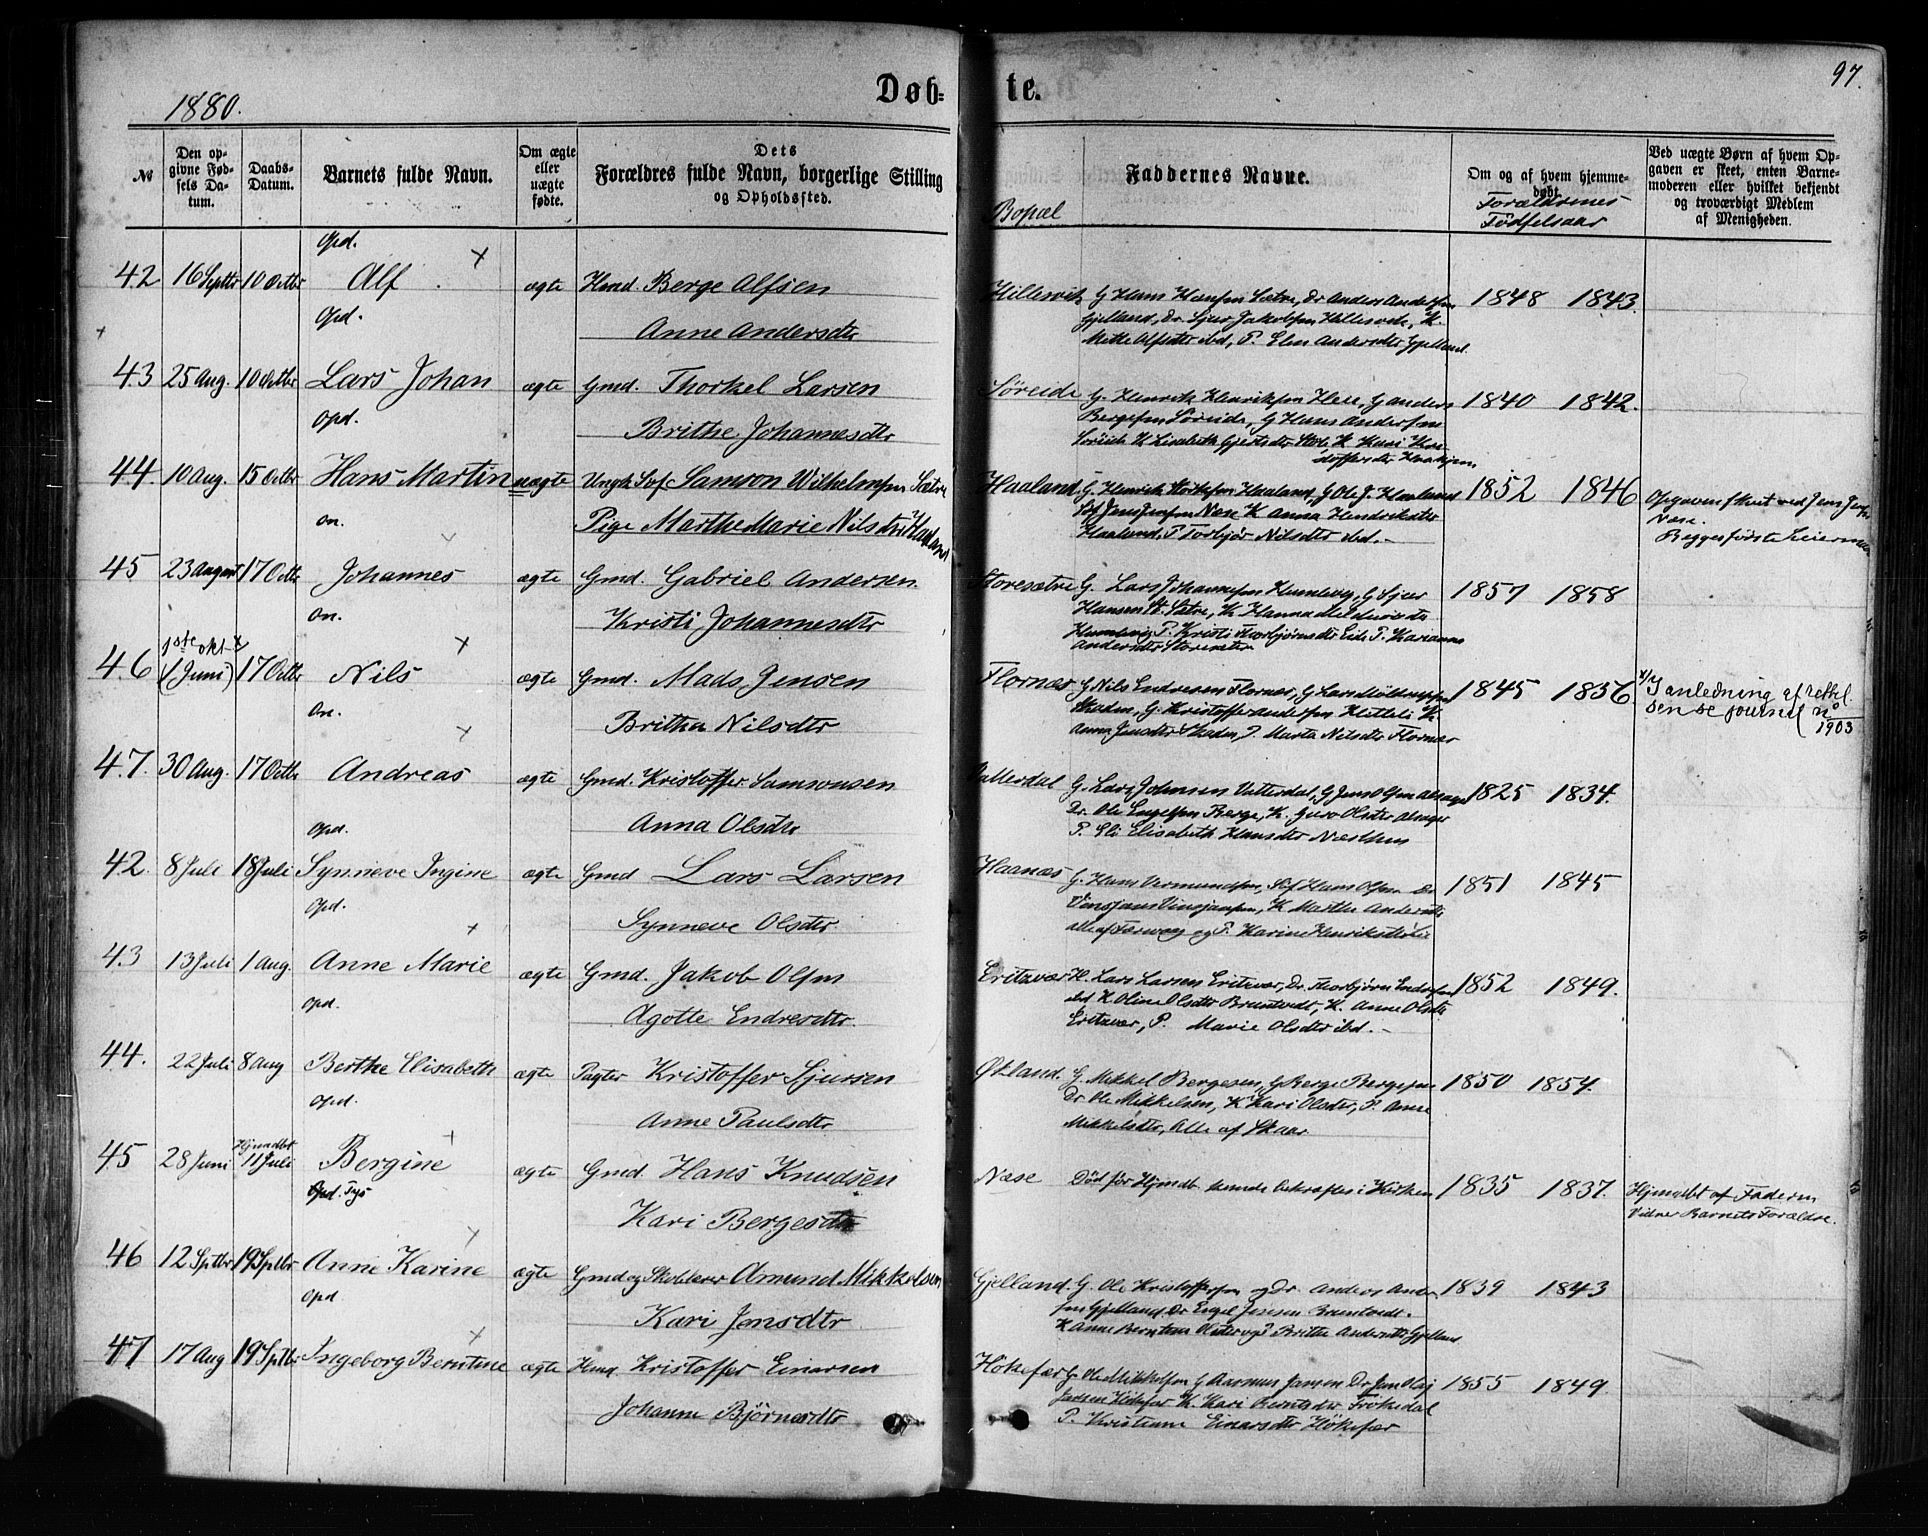 1880.
Døb-
te.
97.
№
Den opgivne Fødsels Datum.
Daabs-Datum.
Barnets fulde Navn.
Om ægte eller uægte fødte.
Dets Forældres fulde Navn, borgerlige Stilling og Opholdssted.
Bopæl
Faddernes Navne.
Om og af hvem hjemmedøbt.
Forældrenes Födselsaar
Ved uægte Børn af hvem Opgaven er skeet, enten Barnemoderen eller hvilket bekjendt og troværdigt Medlem af Menigheden.
Opd.
42 16 Septbr 10 Octbr Alf ægte Hmd. Berge Alfsen Hillesvik G Hans Hansen Sætre, Dr Anders Andersen 1848 1843.
Opd. Anne Andersdtr Gjelland, Dr. Sjur Jakobsen Hillesvik, K.
ibd, P. Elen Andersdtr Gjelland
43 25 Aug. 10 Octbr Lars Johan ægte Gmd. Thorkel Larsen Söreide G. Henrik Henriksen G Anders 1840 1842.
Opd. Brithe Johannesdtr Bergesen Söreide, G Hans Andersen
44. 10 Aug. 15 Octbr Hans Martin uægte Ungk Samson Wilhelmsen Sætre Haaland G. Henrik Haaland, G Ole J. Haaland 1852 1846 Opgaven skeet ved Jens
on. Pige Marthe Marie Nilsdtr Haaland Næse K Anna Hendriksdtr Næse.
Haaland, P Torbjør Nilsdtr ibd. Begges første Leiermaal
45 23 August 17 Octb Johannes ægte Gmd. Gabriel Andersen Storesætre G. Lars Johannesen Humlevig, G Sjur 1857 1858
on. Kristi Johannesdtr Hansen St. Sætre, K Hanna
Humlevig P. Kristi Thorbjörnsdtr Eide P. Karianne
Andersdtr Storesætre
1ste okt x
46 (Juni) 17 Octbr Nils ægte Gmd. Mads Jensen Flornæs G Nils Endresen Flornæs, G Lars 1845 1856 x/ I anledning af rettelsen se journal nº 1903
on. Britha Nilsdtr Skaden, G. Kristoffer Andersen K.
Anna Jensdtr Skaden, P. Marta Nilsdtr Flornæs
47. 30 Aug. 17 Octb Andreas ægte Gmd. Kristoffer Samsonsen Vatterdal G. Lars Johnsen Vatterdal, G Jens Olsen 1825 1834.
Opd. Anna Olsdtr Dr. Ole Engelsen Berge, K. Guro Olsdtr
P. Eli Elisabeth Hansdtr
42. 8 Juli 18 Juli Synneve Ingine ægte Gmd Lars Larsen Haanæs G. Hans Vermundsen, Hans Olsen 1851 1845
Opd. Synneve Olsdtr K Marthe Andersdtr
alle af og P. Karine Henriksdtr
43 13 Juli 1 Aug. Anne Marie ægte Gmd. Jakob Olsen Eritzvær H. Lars Larsen Eritzvær, Dr. Thorbjörn Endresen 1852 1849.
Opd. Agotte Endresdtr. ibd K Oline Olsdtr K. Anne Olsdtr
Eritzvær, P. Marie Olsdtr ibd.
44. 22 Juli 8 Aug Berthe Elisabeth ægte Pagter Kristoffer Sjursen Økland. G. Mikkel Bergesen, G Berge Bergesen 1850 1854.
Opd. Anne Paulsdtr. Dr. Ole Mikkelsen, K Kari Olsdtr, P. Anne
Mikkelsdtr, Alle af Skaar
45 28 Juni Hjmdbt 11 Juli Bergine ægte Gmd. Hans Knudsen Næse Död för Hjmdb. kunde bekræftes i Kirken 1835 1837. Hjmdbt af Faderen
Opd. Kari Bergesdtr Vidner Barnets Forældre.
46 12 Sptbr 19 Sptbr Anne Karine ægte Gmd og Skolelærer Amund Mikkelsen Gjelland. G. Ole Kristoffersen og Dr. Anders Andersen 1839 1843
Opd Kari Jensdtr Gjelland Dr Engel Jensen
K Anne Olsdtr og P Britha Andersdtr Gjelland
47 17 Aug 19 Sptbr Ingeborg Berntine ægte Hmd Kristoffer Einarsen Hökefær G. Ole Mikkelsen G Rasmus Jansen Dr Jan Olai 1855 1849.
Johanne Björnsdtr Jansen Hökefær K. Kari Berntsdtr Frökedal
P. Kristianne Einarsdtr Hökefær